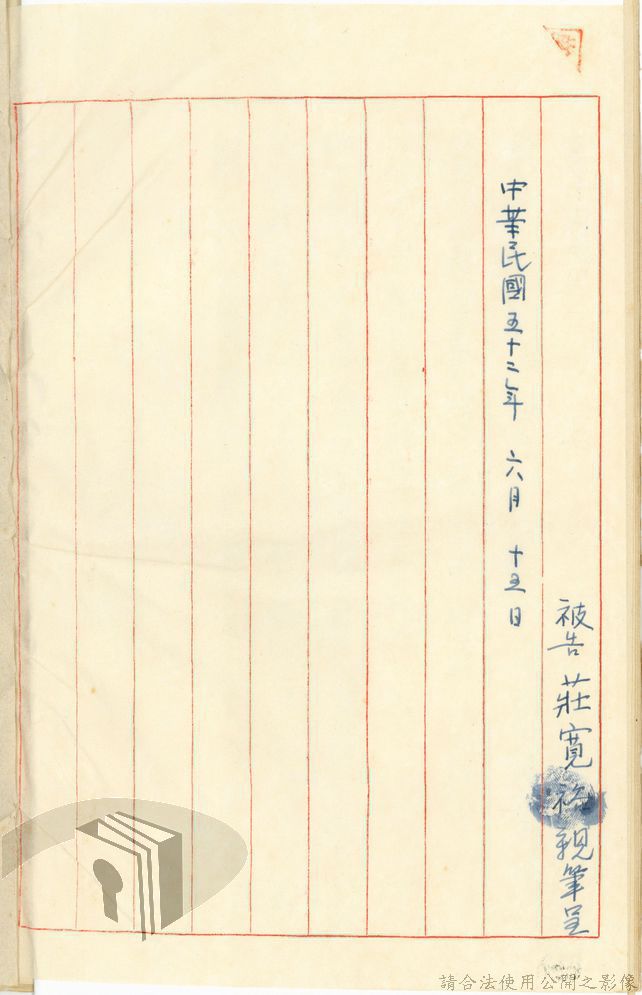 被告 莊寬裕親筆呈
中華民國五十二年 六月 十五日
請合法使用公開之影像